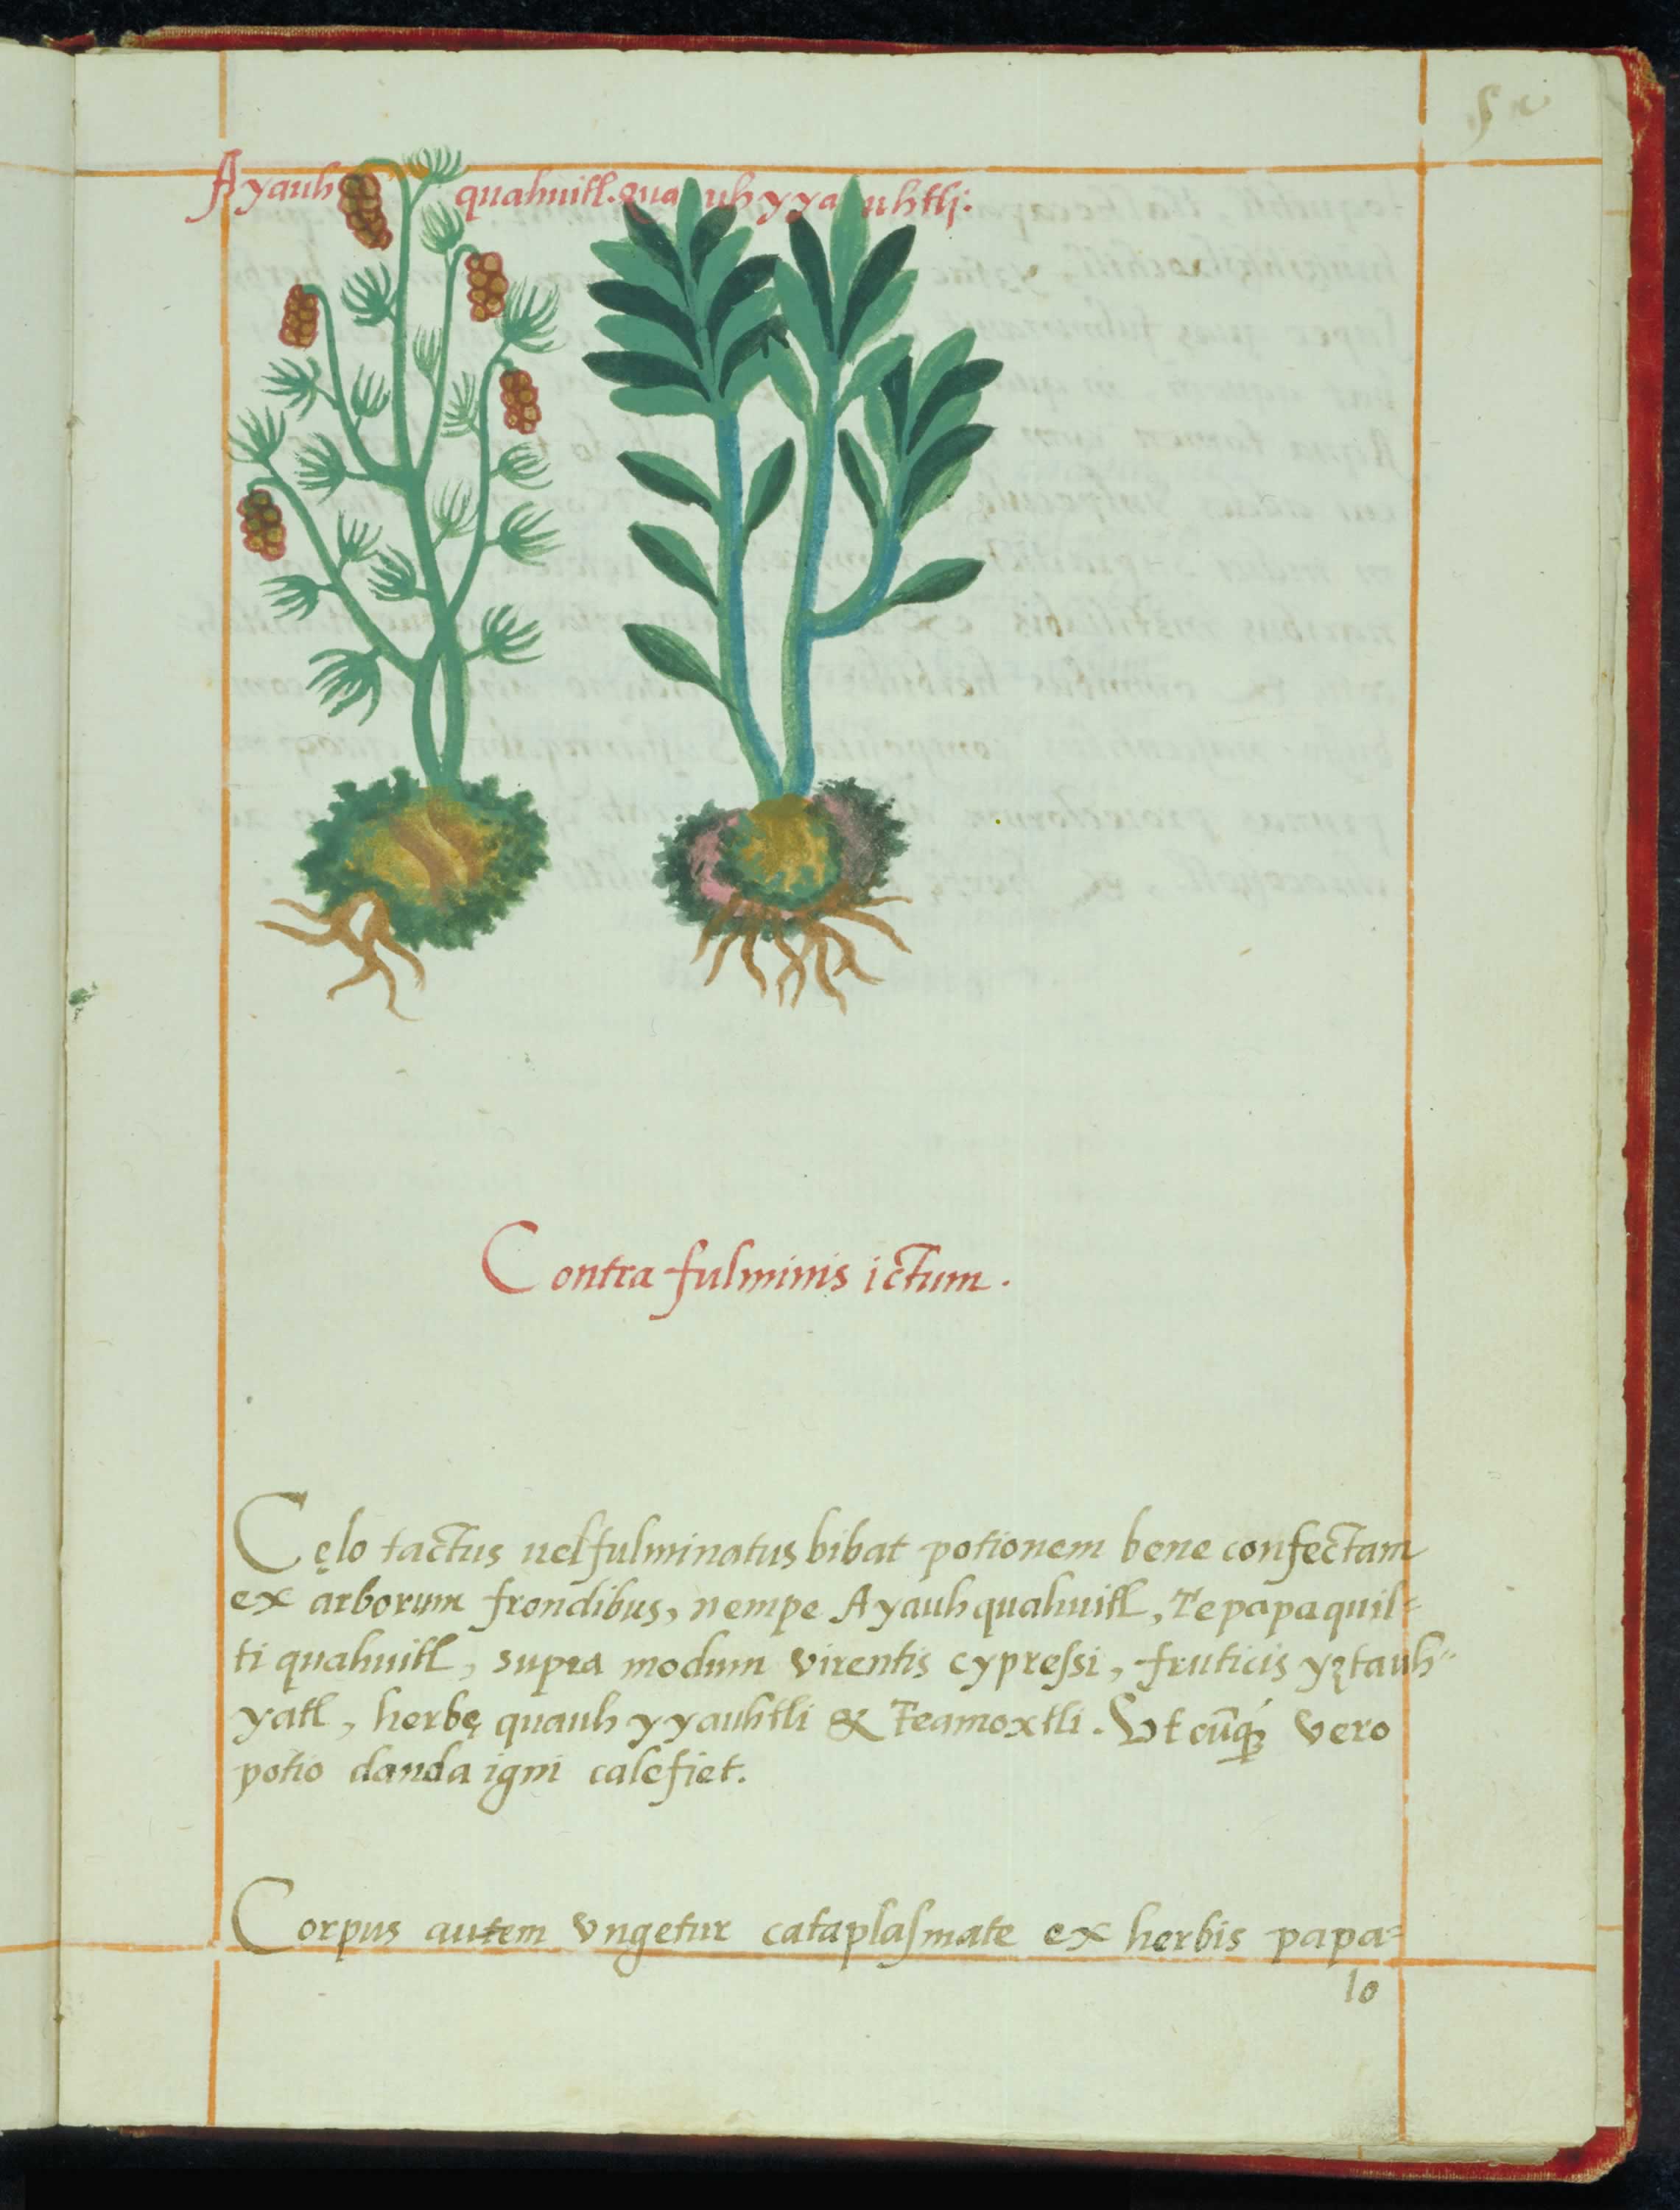 Ayauh quahuitl. quauhyyauhtli:
Contra fulminis ictum.
Cęlo tactus uel fulminatus bibat potionem bene confectam
ex arborum frondibus, nempe Ayauhquahuitl, Tepapaquil=
ti quahuitl, supra modum virentis cypreſsi, fruticis yztauh=
yatl, herbę quauhyyauhtli & Teamoxtli. Vt cūq; vero
potio danda igni calefiet.
Corpus autem vngetur cataplaſmate ex herbis papa=
lo